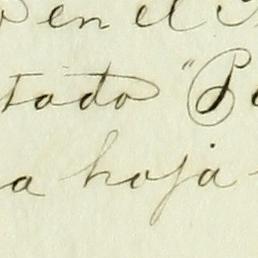 en el
tado "P
a hoja